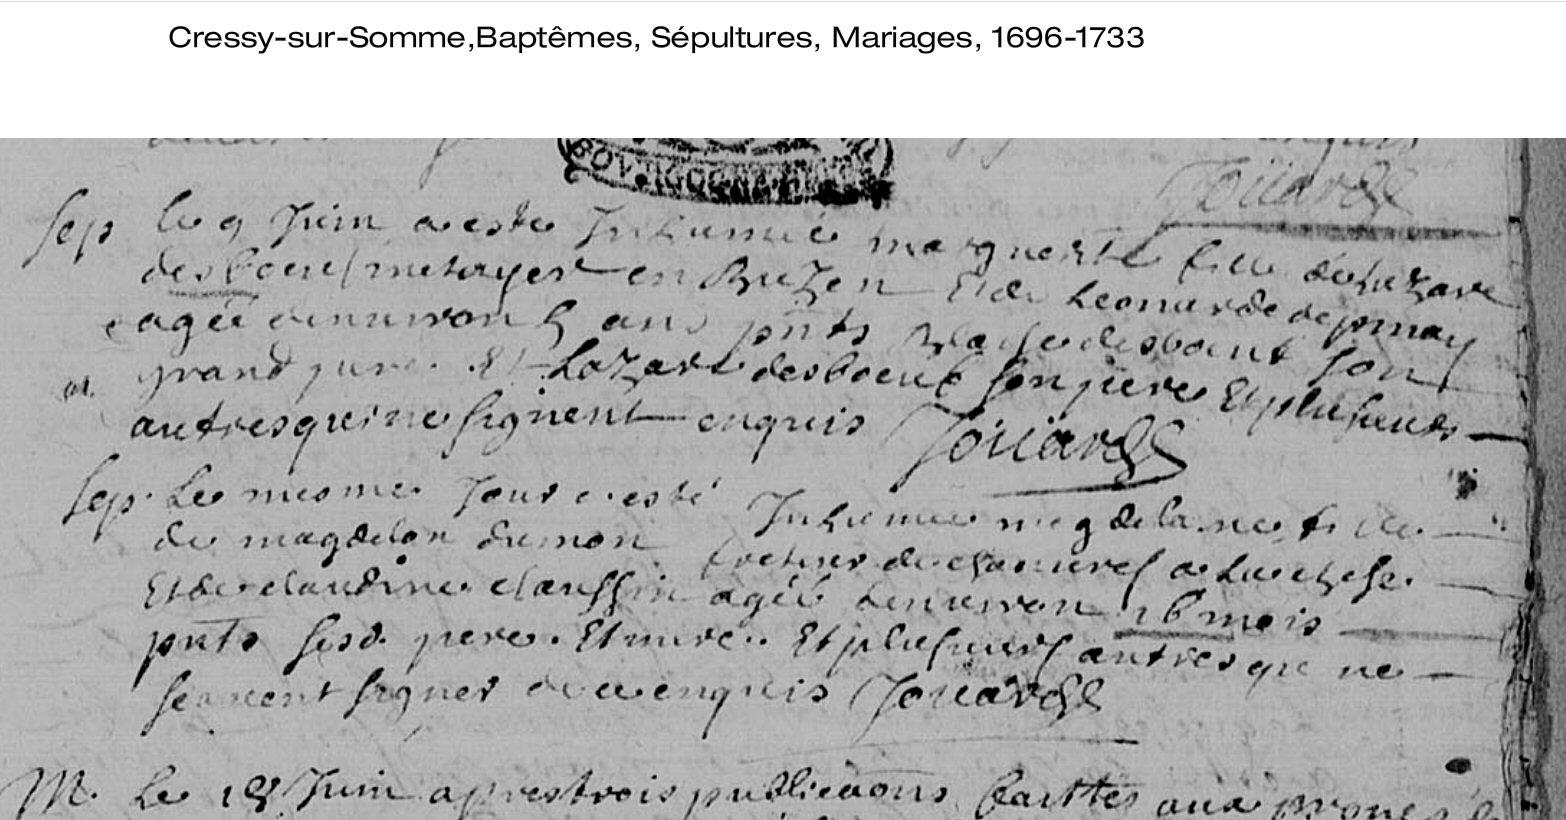 Cressy-sur-Somme,Baptêmes, Sépultures, Mariages, 1696-1733
Sep le 9 Juin a esté Inhumée marguerite fille de Lazare
desboeuf metayer en Et de Leonarde
agée denviron 5 ans pnts desboeuf son
grand pere. Et Lazare desboeuf son pere Et plusieurs
autres qui ne signent enquis
Sep. Le mesme Jour a esté Inhumée magdelaine fille
de magdelon dumon
Et de claudine agée denviron 18 mois
pnts sesd. pere. Et mere.. Et plusieurs autres qui ne
scavent signer de ce enquis
M. Le 18 Juin apres trois publications faittes aux prones